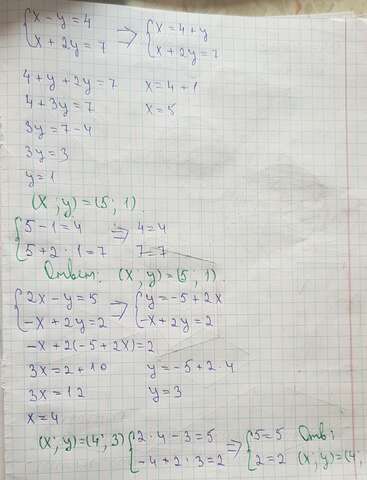 {x - y = 4 => {x = 4 + y
{x + 2y = 7 {x + 2y = 7
4 + y + 2y = 7 x = 4 + 1
4 + 3y = 7 x = 5
3y = 7 - 4
3y = 3
y = 1
(x; y) = (5; 1).
{5 - 1 = 4 => 4 = 4
{5 + 2 · 1 = 7 7 = 7
Ответ: (x; y) = (5; 1).
{2x - y = 5 => {y = -5 + 2x
{-x + 2y = 2 {-x + 2y = 2
-x + 2(-5 + 2x) = 2
3x = 2 + 10 y = -5 + 2 · 4
3x = 12 y = 3
x = 4
(x; y) = (4; 3) {2 · 4 - 3 = 5 => {5 = 5 Отв:
{-4 + 2 · 3 = 2 {2 = 2 (x; y) = (4;